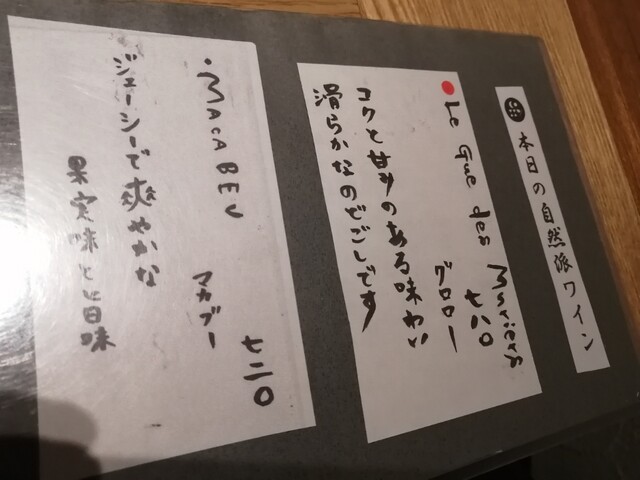 本日の自然派ワイン
Le Gue des Mariers
七八〇
グロロー
コクと甘みのある味わい
滑らかなのどごしです
・MACABEU
七二〇
マカブー
ジェーシーで爽やかな
果実味と旨味